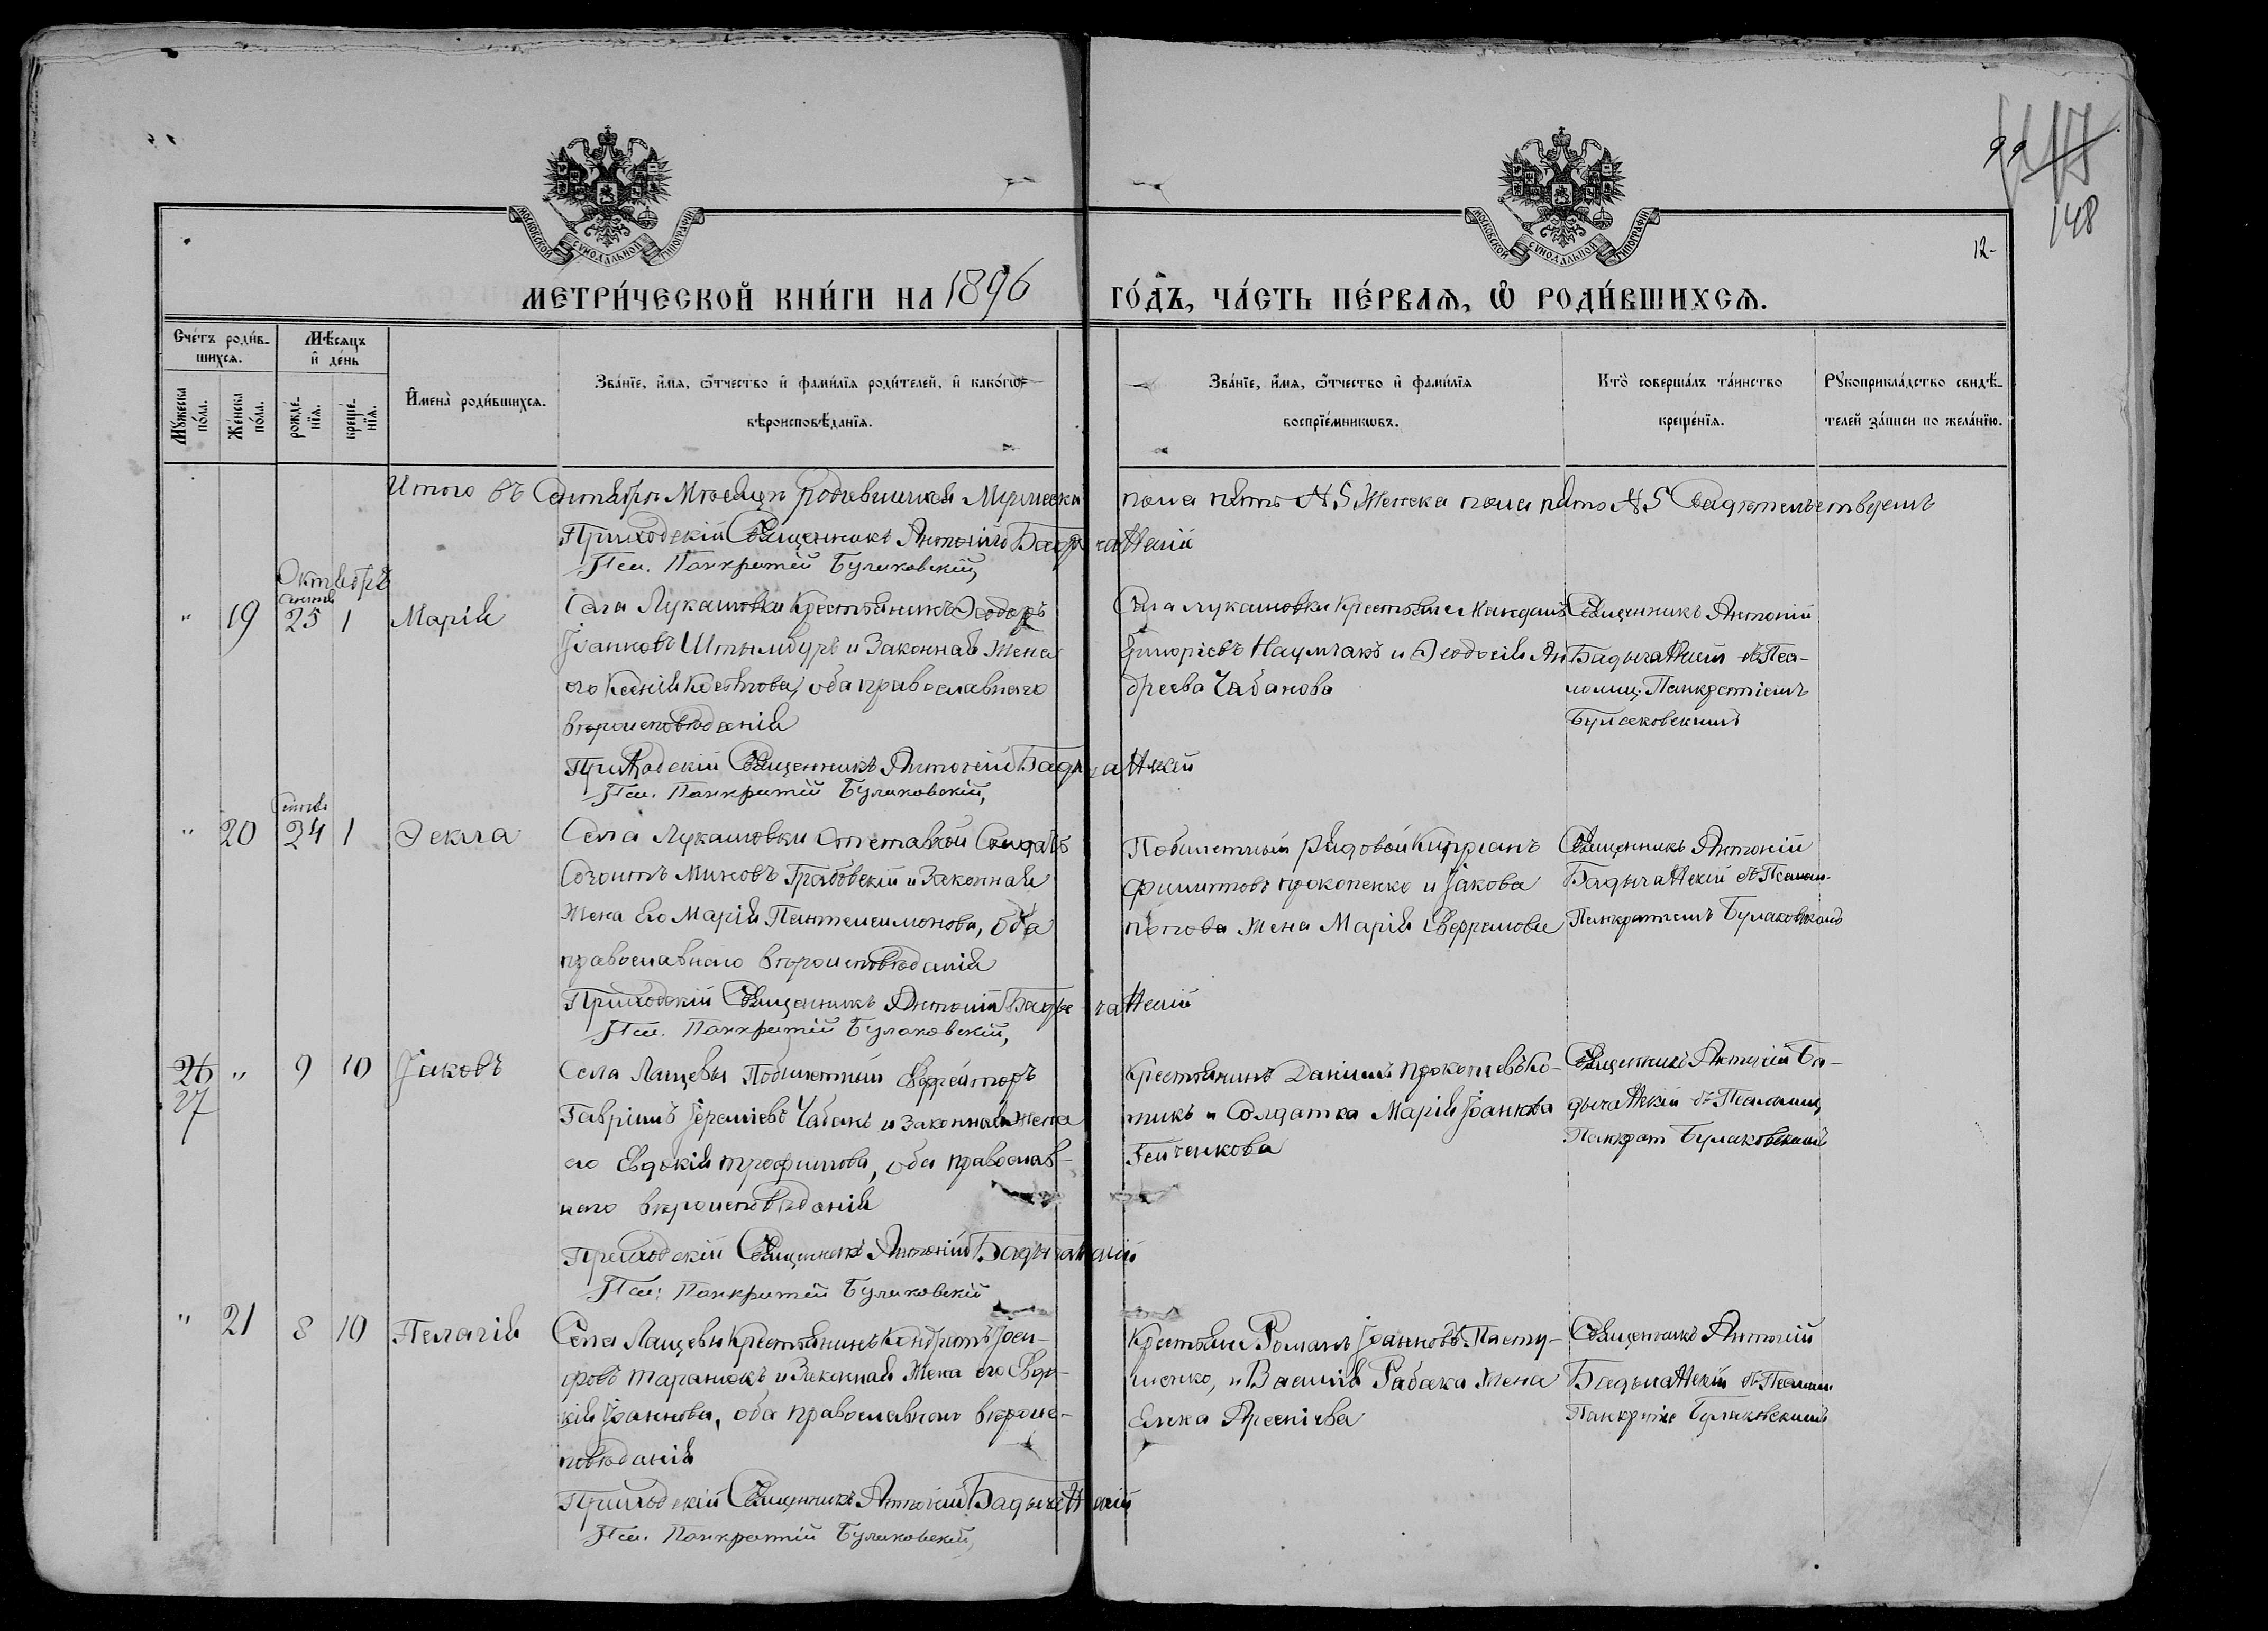 99
148
12-
МОСКОВСКОЙ СУНОДАЛЬНОЙ ТИПОГРАФІИ
МОСКОВСКОЙ СУНОДАЛЬНОЙ ТИПОГРАФІИ
МЕТРИ́ЧЕСКОЙ КНИ́ГИ НА 1896 ГО́ДЪ, ЧА́СТЬ ПЕ́РВАѦ, Ѿ РОДИ́ВШИХСѦ.
Сче́тъ роди́в-
шихсѧ.
Мѣ́сѧцъ
и҆ де́нь
Му́жеска по́ла.
Же́нска по́ла.
рожде́-нїѧ.
креще́-нїѧ.
И҆мена̀ роди́вшихсѧ.
Зва́нїе, и҆́мѧ, ѻ҆́тчество и҆ фами́лїѧ роди́телей, и҆ како́гѡ
вѣроисповѣ́данїѧ.
Зва́нїе, и҆́мѧ, ѻ҆́тчество и҆ фами́лїѧ
воспрїе́мникѡвъ.
Кто̀ соверша́лъ та́инство
креще́нїѧ.
Рꙋкоприкла́дство свидѣ́-
телей за́писи по жела́нїю.
Итого въ Сентябрѣ Мѣсяцѣ родившихся Мужеска пола пять №5 Женска пола пять №5 Свидѣтельствуемъ
Приходскій Священникъ Антоній
Псал. Панкратій Булаковскій,
Октябрь
Сентяб
" 19 25 1 Марія
Села Лукашовки Крестьянинъ Ѳеодоръ
Іоанновъ Штымбуръ и Законная Жена
его Ксенія Костова, оба православнаго
вѣроисповѣданія
Села Лукашовки Крестьяне
Григоріевъ Наумчакъ и Ѳеодосія Ан
дреева Чабанова
Священникъ Антоній
съ Пса-
ломщ. Панкратіемъ
Булаковскимъ
Приходскій Священникъ Антоній
Псал. Панкратій Булаковскій,
Сентяб
" 20 24 1 Ѳекла
Села Лукашовки Отставной Солдатъ
Созонтъ Миновъ Грабовскій и Законная
Жена Его Марія Пантелеимонова, оба
православнаго вѣроисповѣданія
Побилетный рядовой Кипріанъ
Филиповъ Прокопенко и Іакова
Попова Жена Марія Евфремова
Священникъ Антоній
съ Псалом.
Панкратіемъ Булаковскимъ
Приходскій Священникъ Антоній
Псал. Панкратій Булаковскій,
26 " 9 10 Іаковъ
27
Села Лащевы Побилетный Ефрейторъ
Гавріилъ Чабанъ и законная жена
его Евдокія Трофимова, оба православ-
наго вѣроисповѣданія
Крестьянинъ Даніилъ Прокопіевъ Ко-
тикъ и Солдатка Марія Іоаннова
Священникъ Антоній
съ Псаломщ
Панкрат Булаковскимъ
Приходскій Священникъ Антоній
Псал. Панкратій Булаковскій
" 21 8 10 Пелагія
Села Лащевы Крестьянинъ Кондратъ Іоси-
фовъ Таранюкъ и Законная Жена его Евдо-
кія Іоаннова, оба православнаго вѣроис-
повѣданія
Крестьяне Романъ Іоанновъ Пасту-
шенко, и Василія Рабака Жена
Елека Арсеніева
Священникъ Антоній
съ Псалом
Панкратіе Булаковскимъ
Приходскій Священникъ Антоній
Псал. Панкратій Булаковскій,